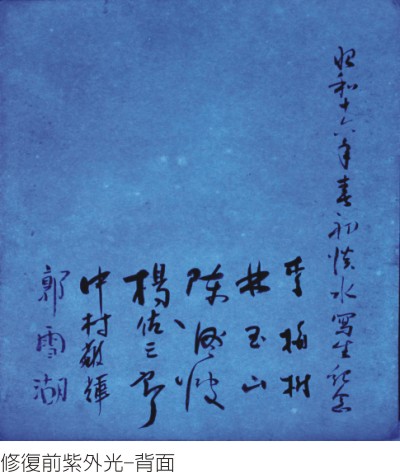 昭和十六年春初淡水寫生紀念
李梅樹
林玉山
陳澄波
楊佐三郎
中村敬輝
郭雪湖
修復前紫外光–背面